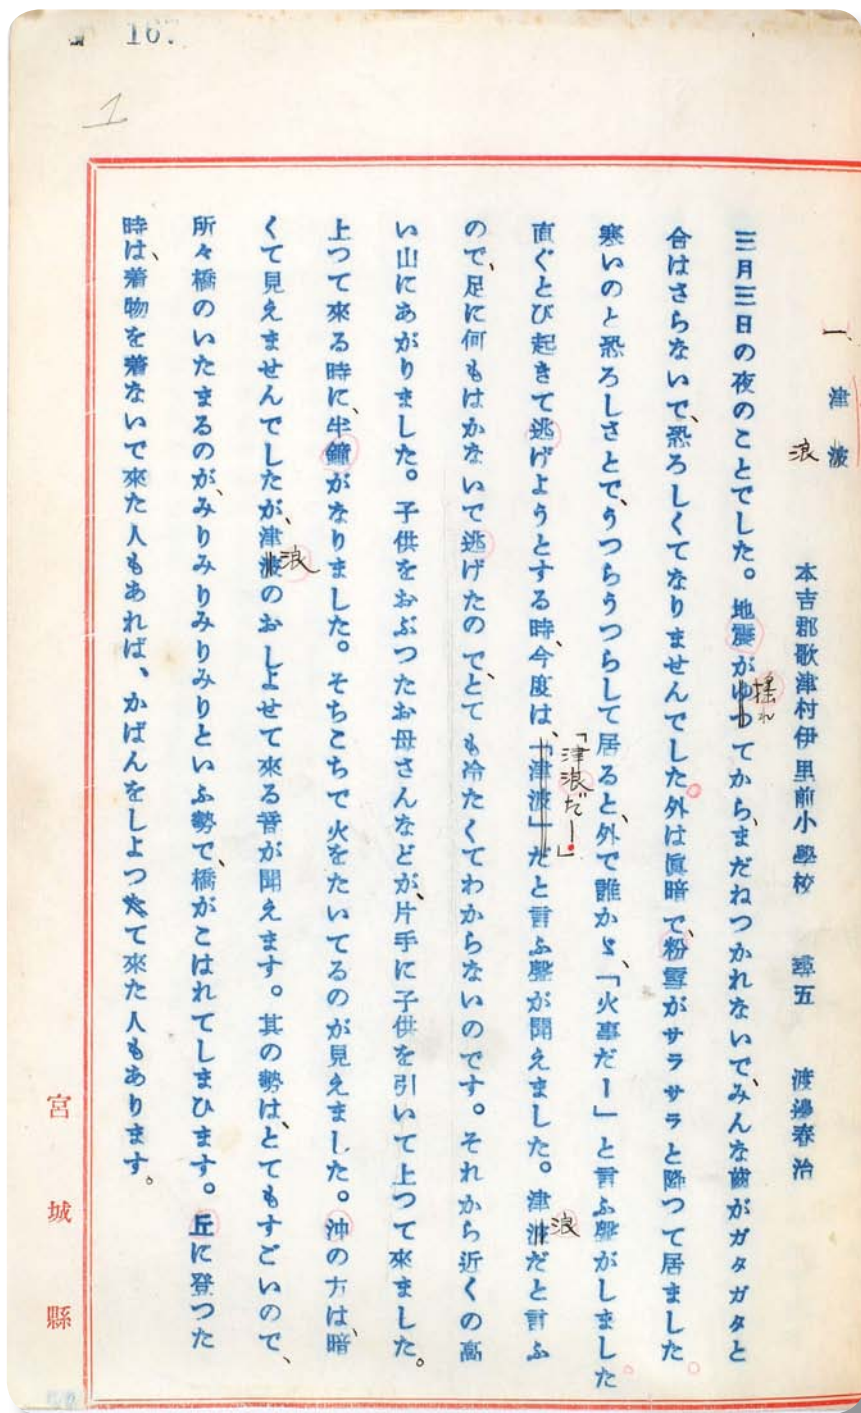 16.
1
一、津波
浪
本吉郡歌津村伊里前小學校 尋五 渡邊春治
三月三日の夜のことでした。地震がゆつてから、まだねつかれないで、みんな歯がガタガタと
揺れ
合はさらないで、恐ろしくてなりませんでした。外は眞暗で、粉雪がサラサラと降つて居ました。
寒いのと恐ろしさとで、うつらうつらして居ると、外で誰かゞ、「火事だー」と言ふ聲がしました。
「津浪だー!」
直ぐとび起きて逃げようとする時、今度は、「津波」だと言ふ聲が聞えました。津波だと言ふ
浪
ので、足に何もはかないで逃げたので、とても冷たくてわからないのです。それから近くの高
い山にあがりました。子供をおぶつたお母さんなどが、片手に子供を引いて上つて來ました。
上つて來る時に、半鐘がなりました。そちこちで火をたいてるのが見えました。沖の方は、暗
くて見えませんでしたが、津波のおしよせて來る音が聞えます。其の勢は、とてもすごいので、
浪
所々橋のいたまるのが、みりみりみりみりといふ勢で、橋がこはれてしまひます。丘に登つた
時は、着物を着ないで來た人もあれば、かばんをしよつて來た人もあります。
宮城縣